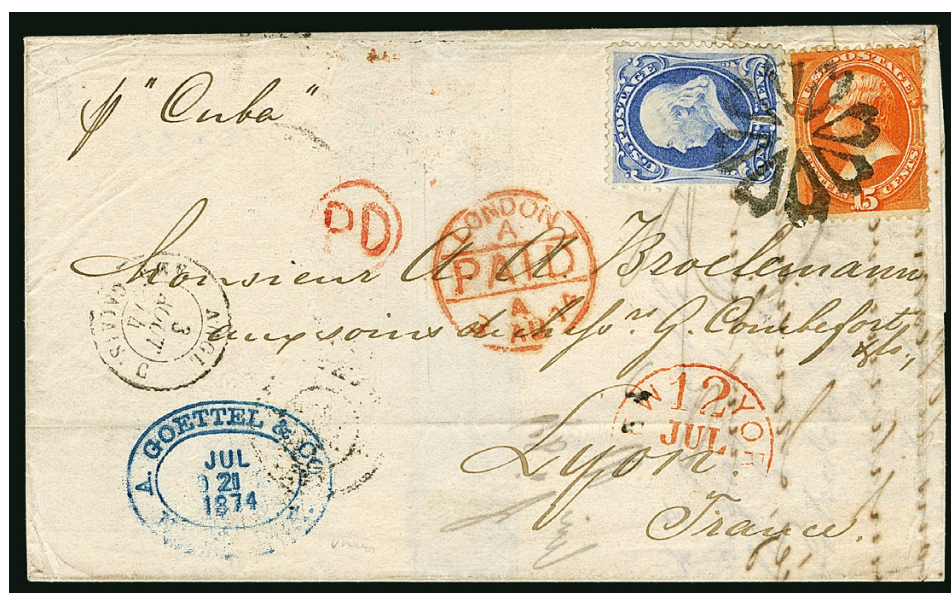 p "Cuba"
U.S. POSTAGE
U.S. POSTAGE
15 CENTS
PD
LONDON
A
PAID
A
AU
Monsieur A A Broelemann
aux soins de Mess.rs G. Combefort
&Co,
Lyon
France.
ANGL.
3
AOUT
74
CALAIS
NEW YORK
12
JUL
A. GOETTEL & CO
JUL
21
1874